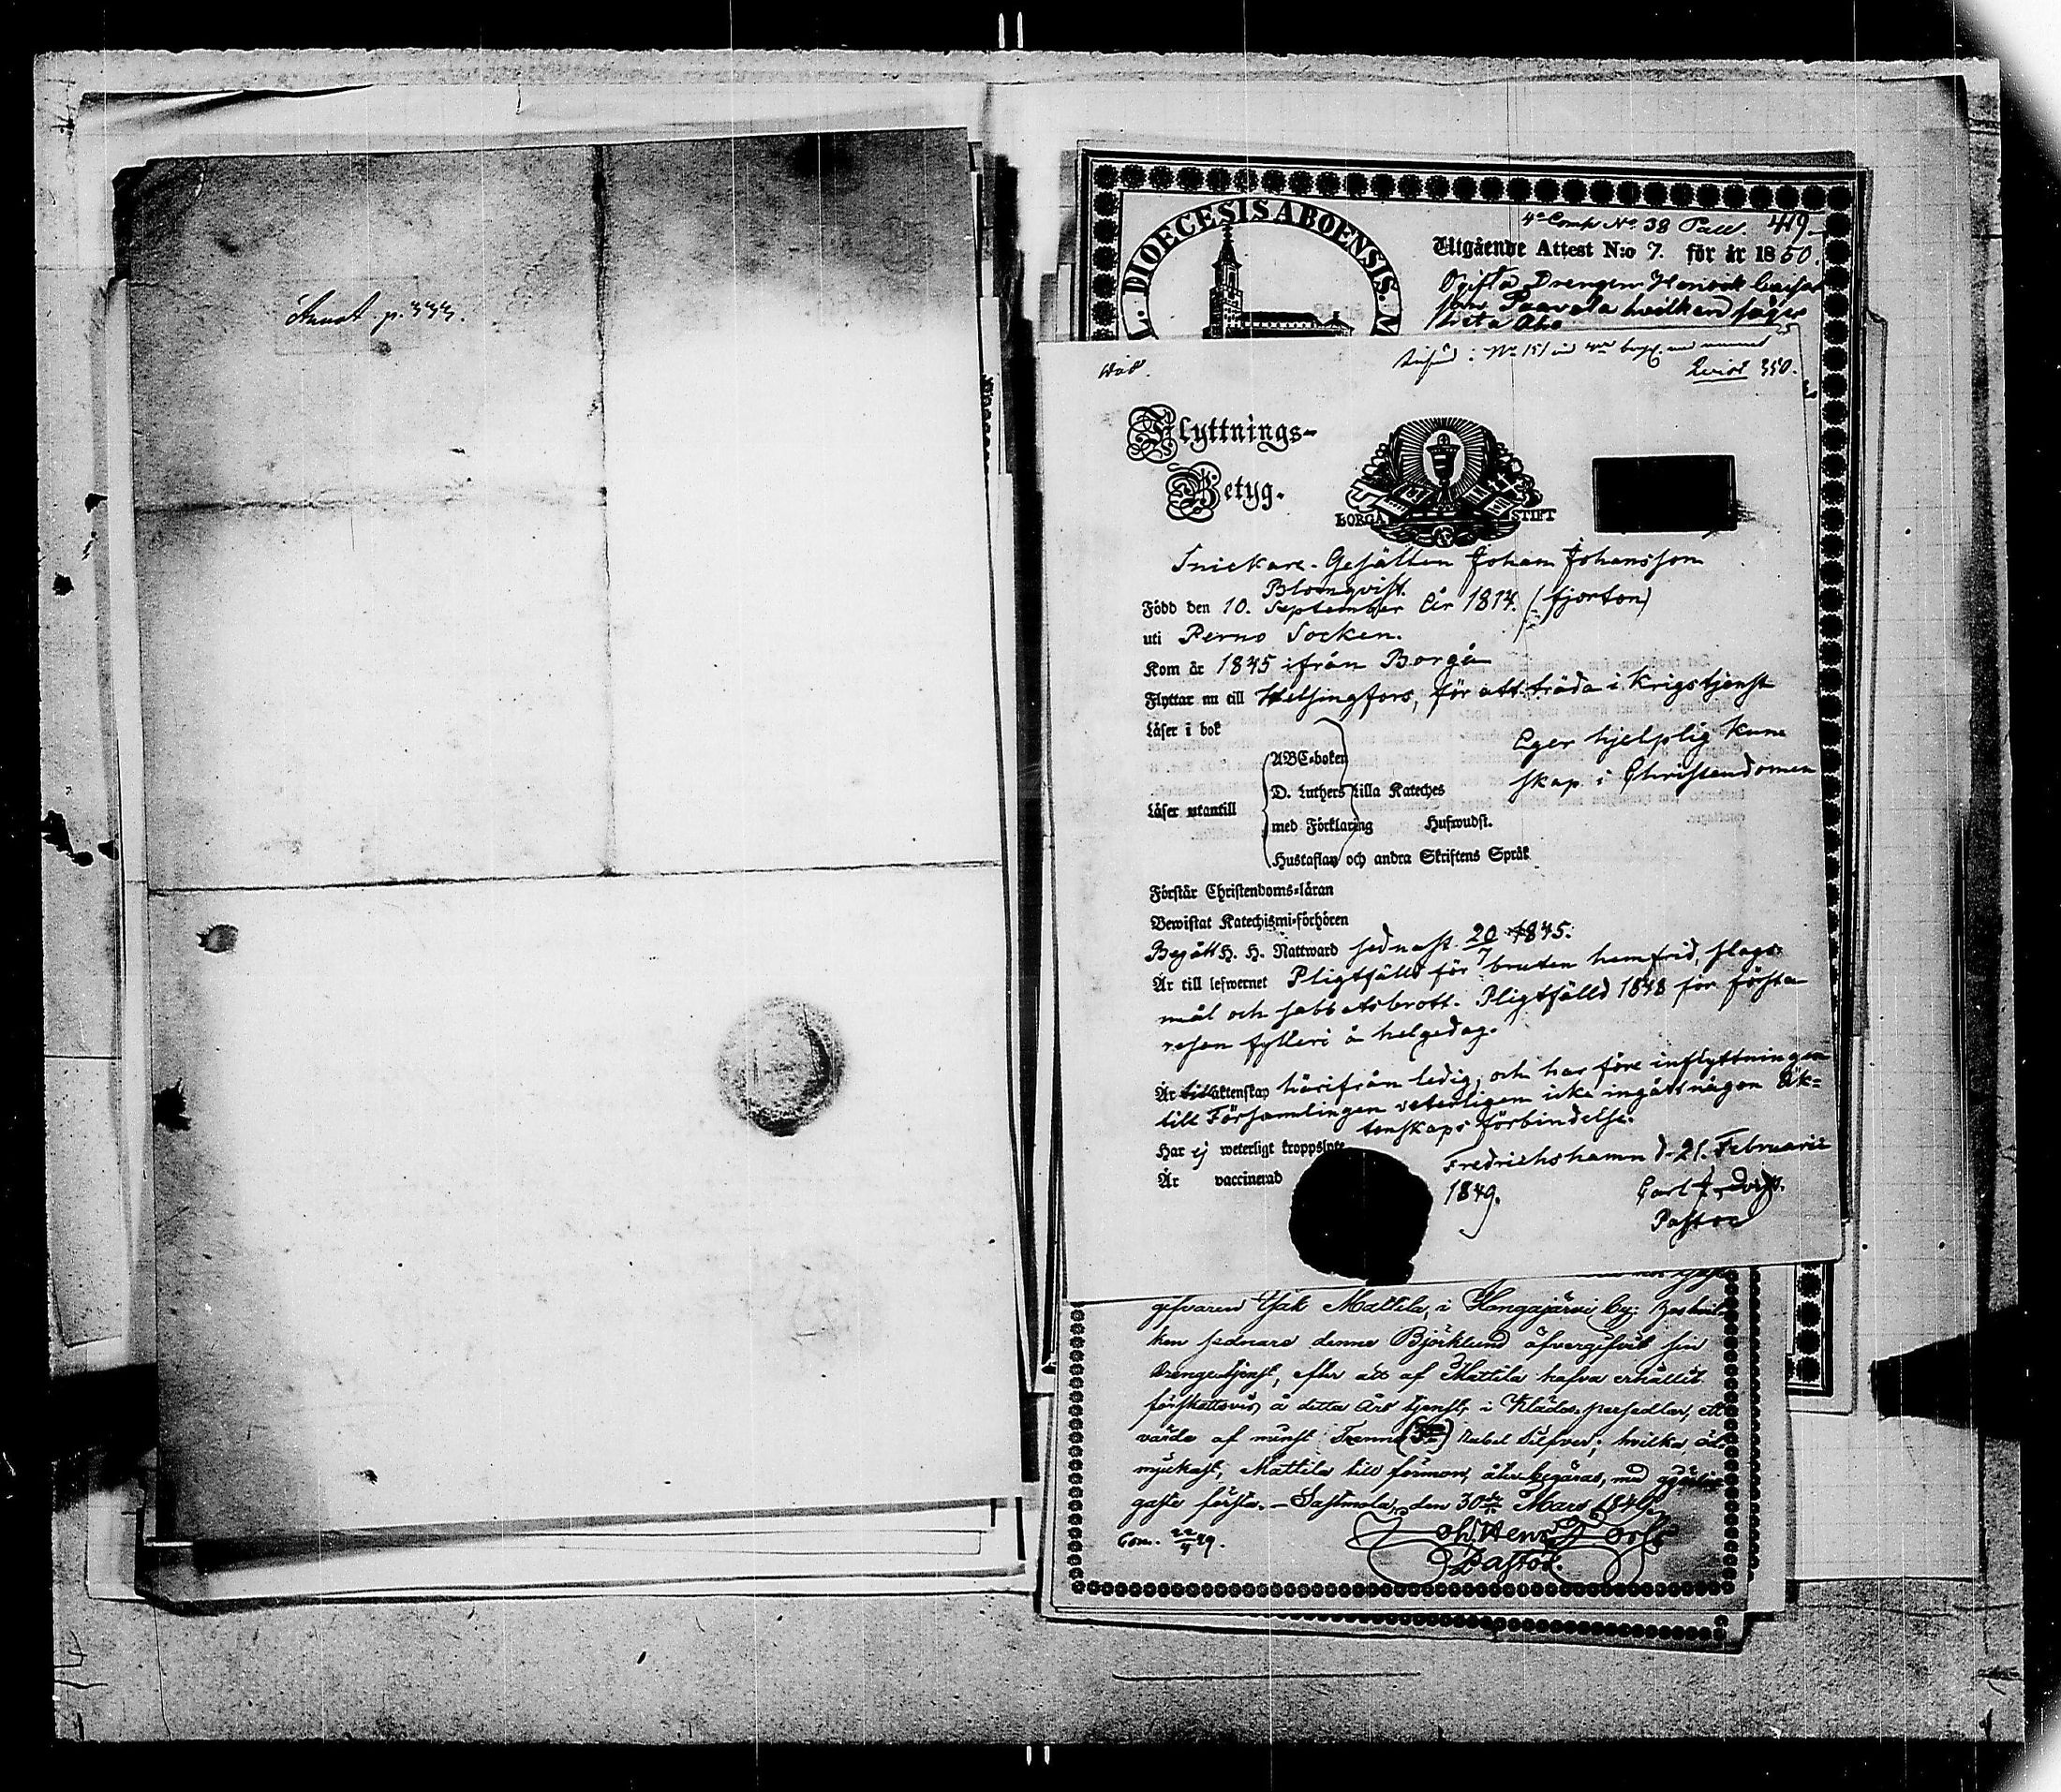 Annot. p. 333.
DIOECESIS ABOENSIS. M
L.
4e Comp No. 38 Pall. 419.
Utgående Attest N:o 7. för år 1850.
Ogifta Drengen Henrik
Paavola hvilken säges
Qvist 350.
Flyttnings-
Betyg.
BORGÅ STIFT
Snickare-Gesällen Johan Johansson
Blomqvist.
Född den 10. September År 1814. (fjorton)
uti Perno Socken.
Kom år 1845 ifrån Borgå
Flyttar nu till Helsingfors, för att träda i Krigstjenst
Läser i bok
ABC-boken
Eger hjelplig Kun-
skap i Christendomen
D. Luthers Lilla Kateches
Läser utantill
med Förklaring Hufwudst.
Hustaflan och andra Skriftens Språk
Förstår Christendoms-läran
Bewistat Katechismi-förhören
Begått H. H. Nattward sednast 20/7 1845.
Är till lefwernet Pligtfälld för bruten hemfrid, slags-
mål och sabbatsbrott. Pligtfälld 1848 för första
resan fylleri å helgedag.
Är till äktenskap härifrån ledig, och har före inflyttningen
till Församlingen veterligen icke ingått någon Äk-
tenskaps förbindelse.
Har ej weterligt kroppslyte
Är vaccinerad
Fredrichshamn d. 21. Februarii
1849.
Carl
Pastor
gefvaren Isak Mattila, i Hongajärvi by; hos hvil-
ken sednare denne Björklund öfvergifvit sin
drengetjenst, efter att af Mattila hafva erhållit
förskottsvis å detta Års tjenst, i Klädes persedlar, ett
värde af minst Trenne Rubel Silfver; hvilka öd-
mjukast, Mattila till förmon, återbegäras, med
gaste första. - Sastmola, den 30de Mars 1849.
Pastor.
Com. 22/4 49.